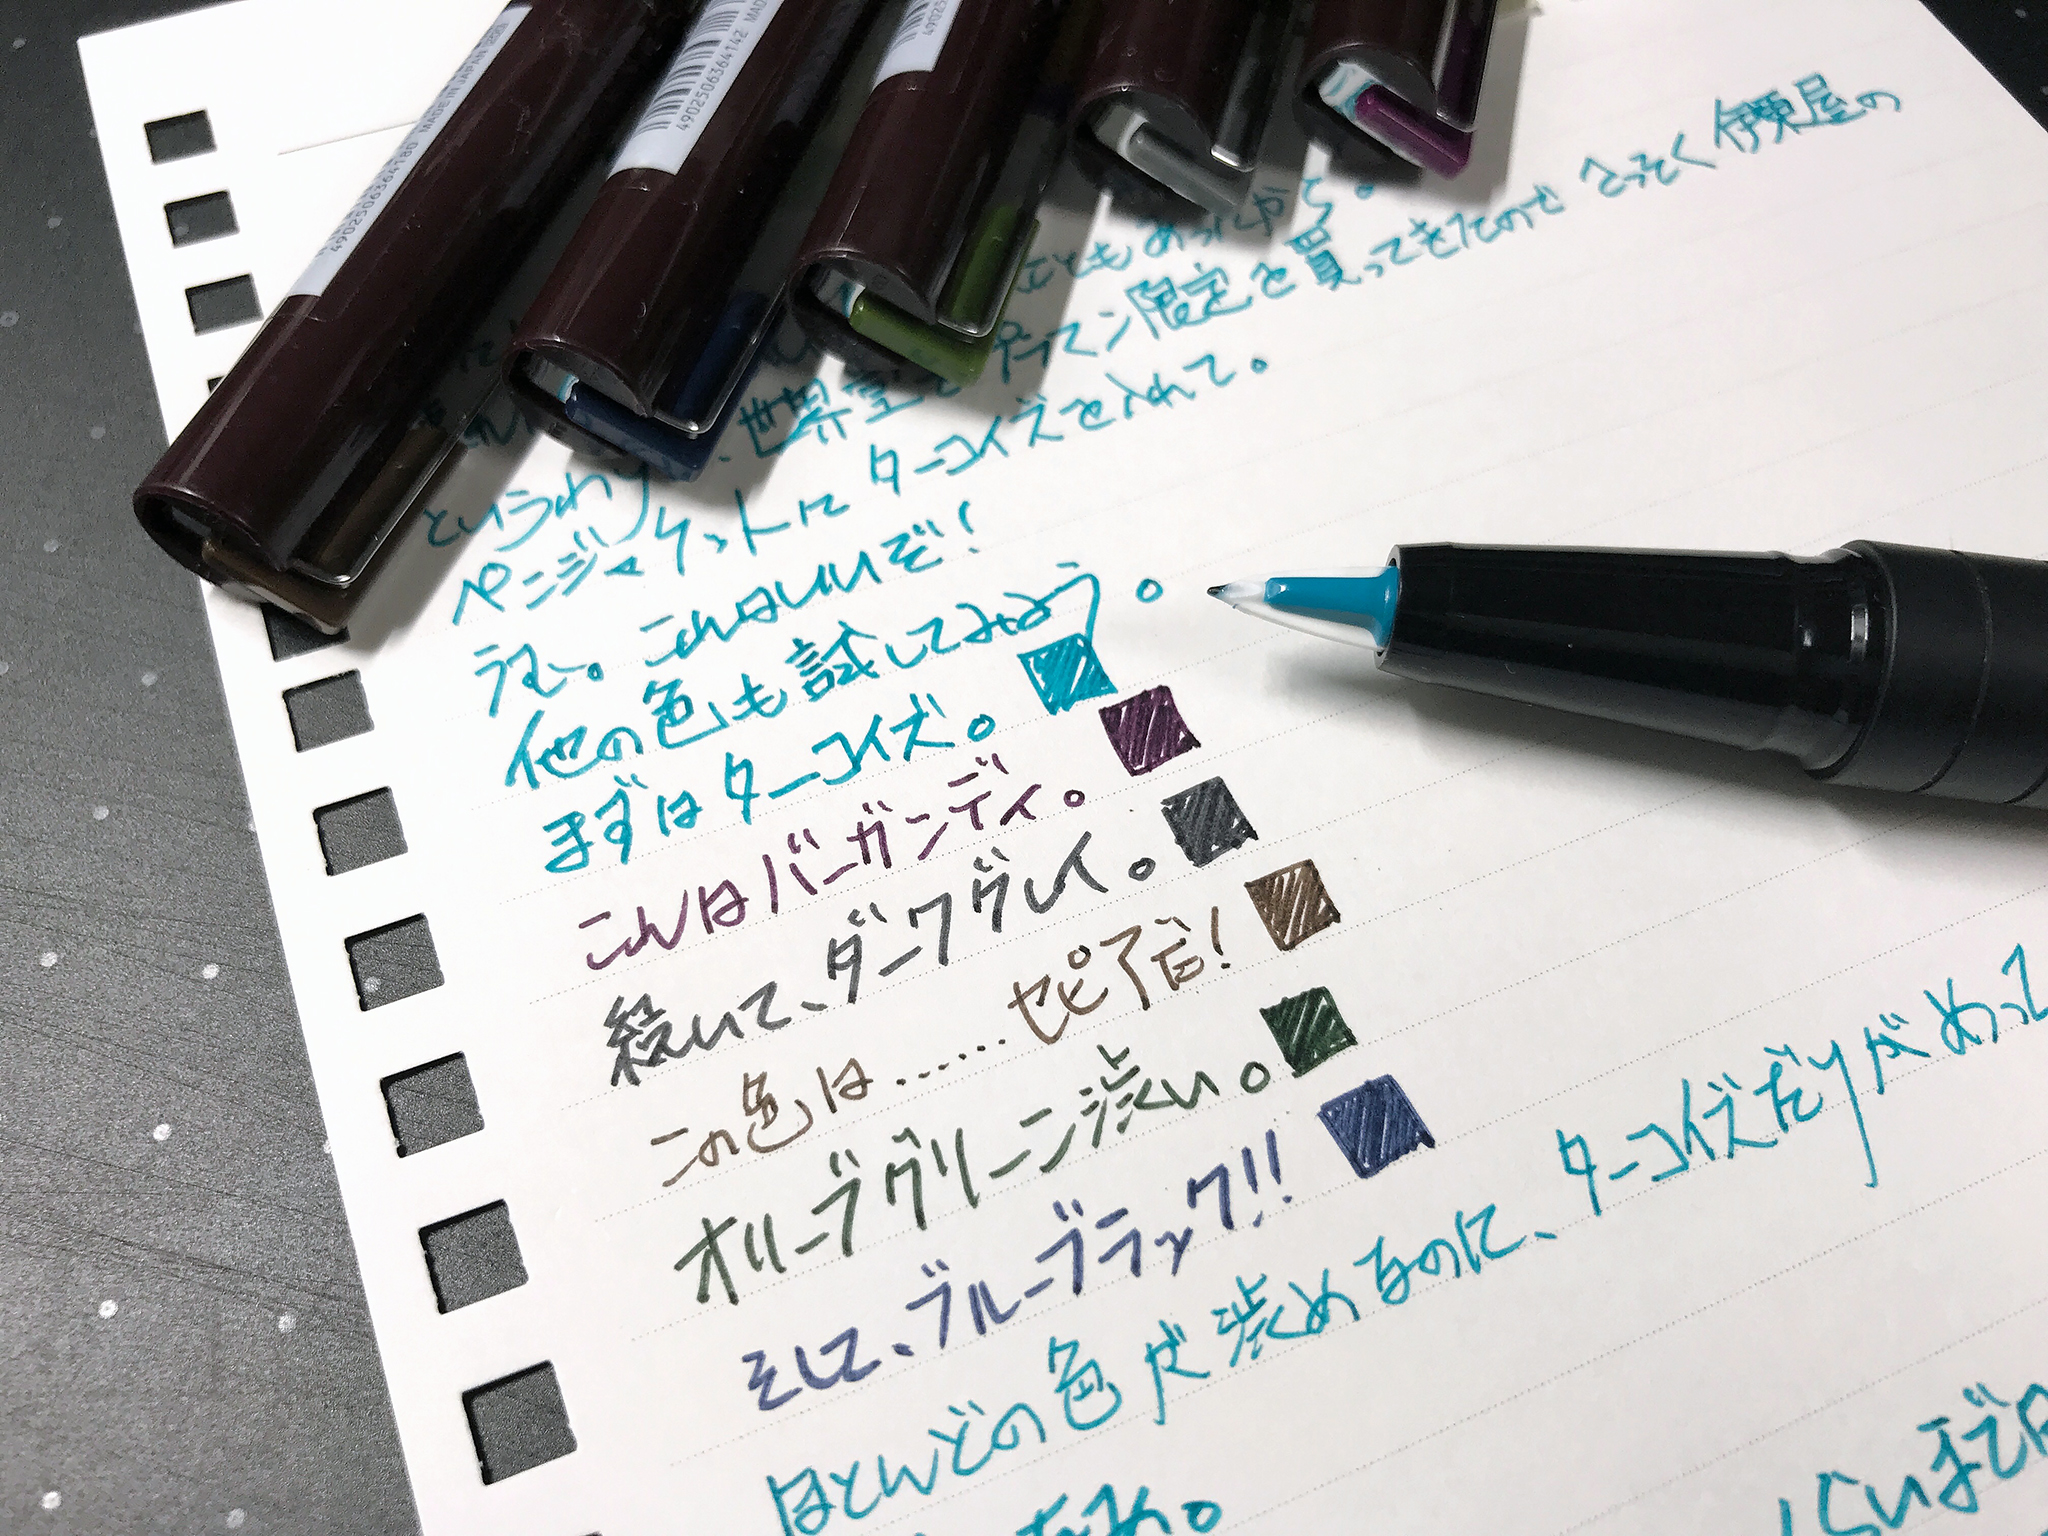 4902506364180 MADE IN JAPAN
4902506364142 MAD
49025063
こともあったから。
というわけ、世界堂でプラマン限定を買ってきたのでさっそく伊東屋の
ペンジャケットにターコイズを入れて。
うむ。これはいいぞ!
他の色も試してみよう。
まずはターコイズ。
これはバーガンディ。
続いて、ダークグレイ。
この色は……セピアだ!
オリーブグリーン渋い。
そして、ブルーブラック!!
ほとんどの色が渋めなのに、ターコイズだけがめって
くらいまで